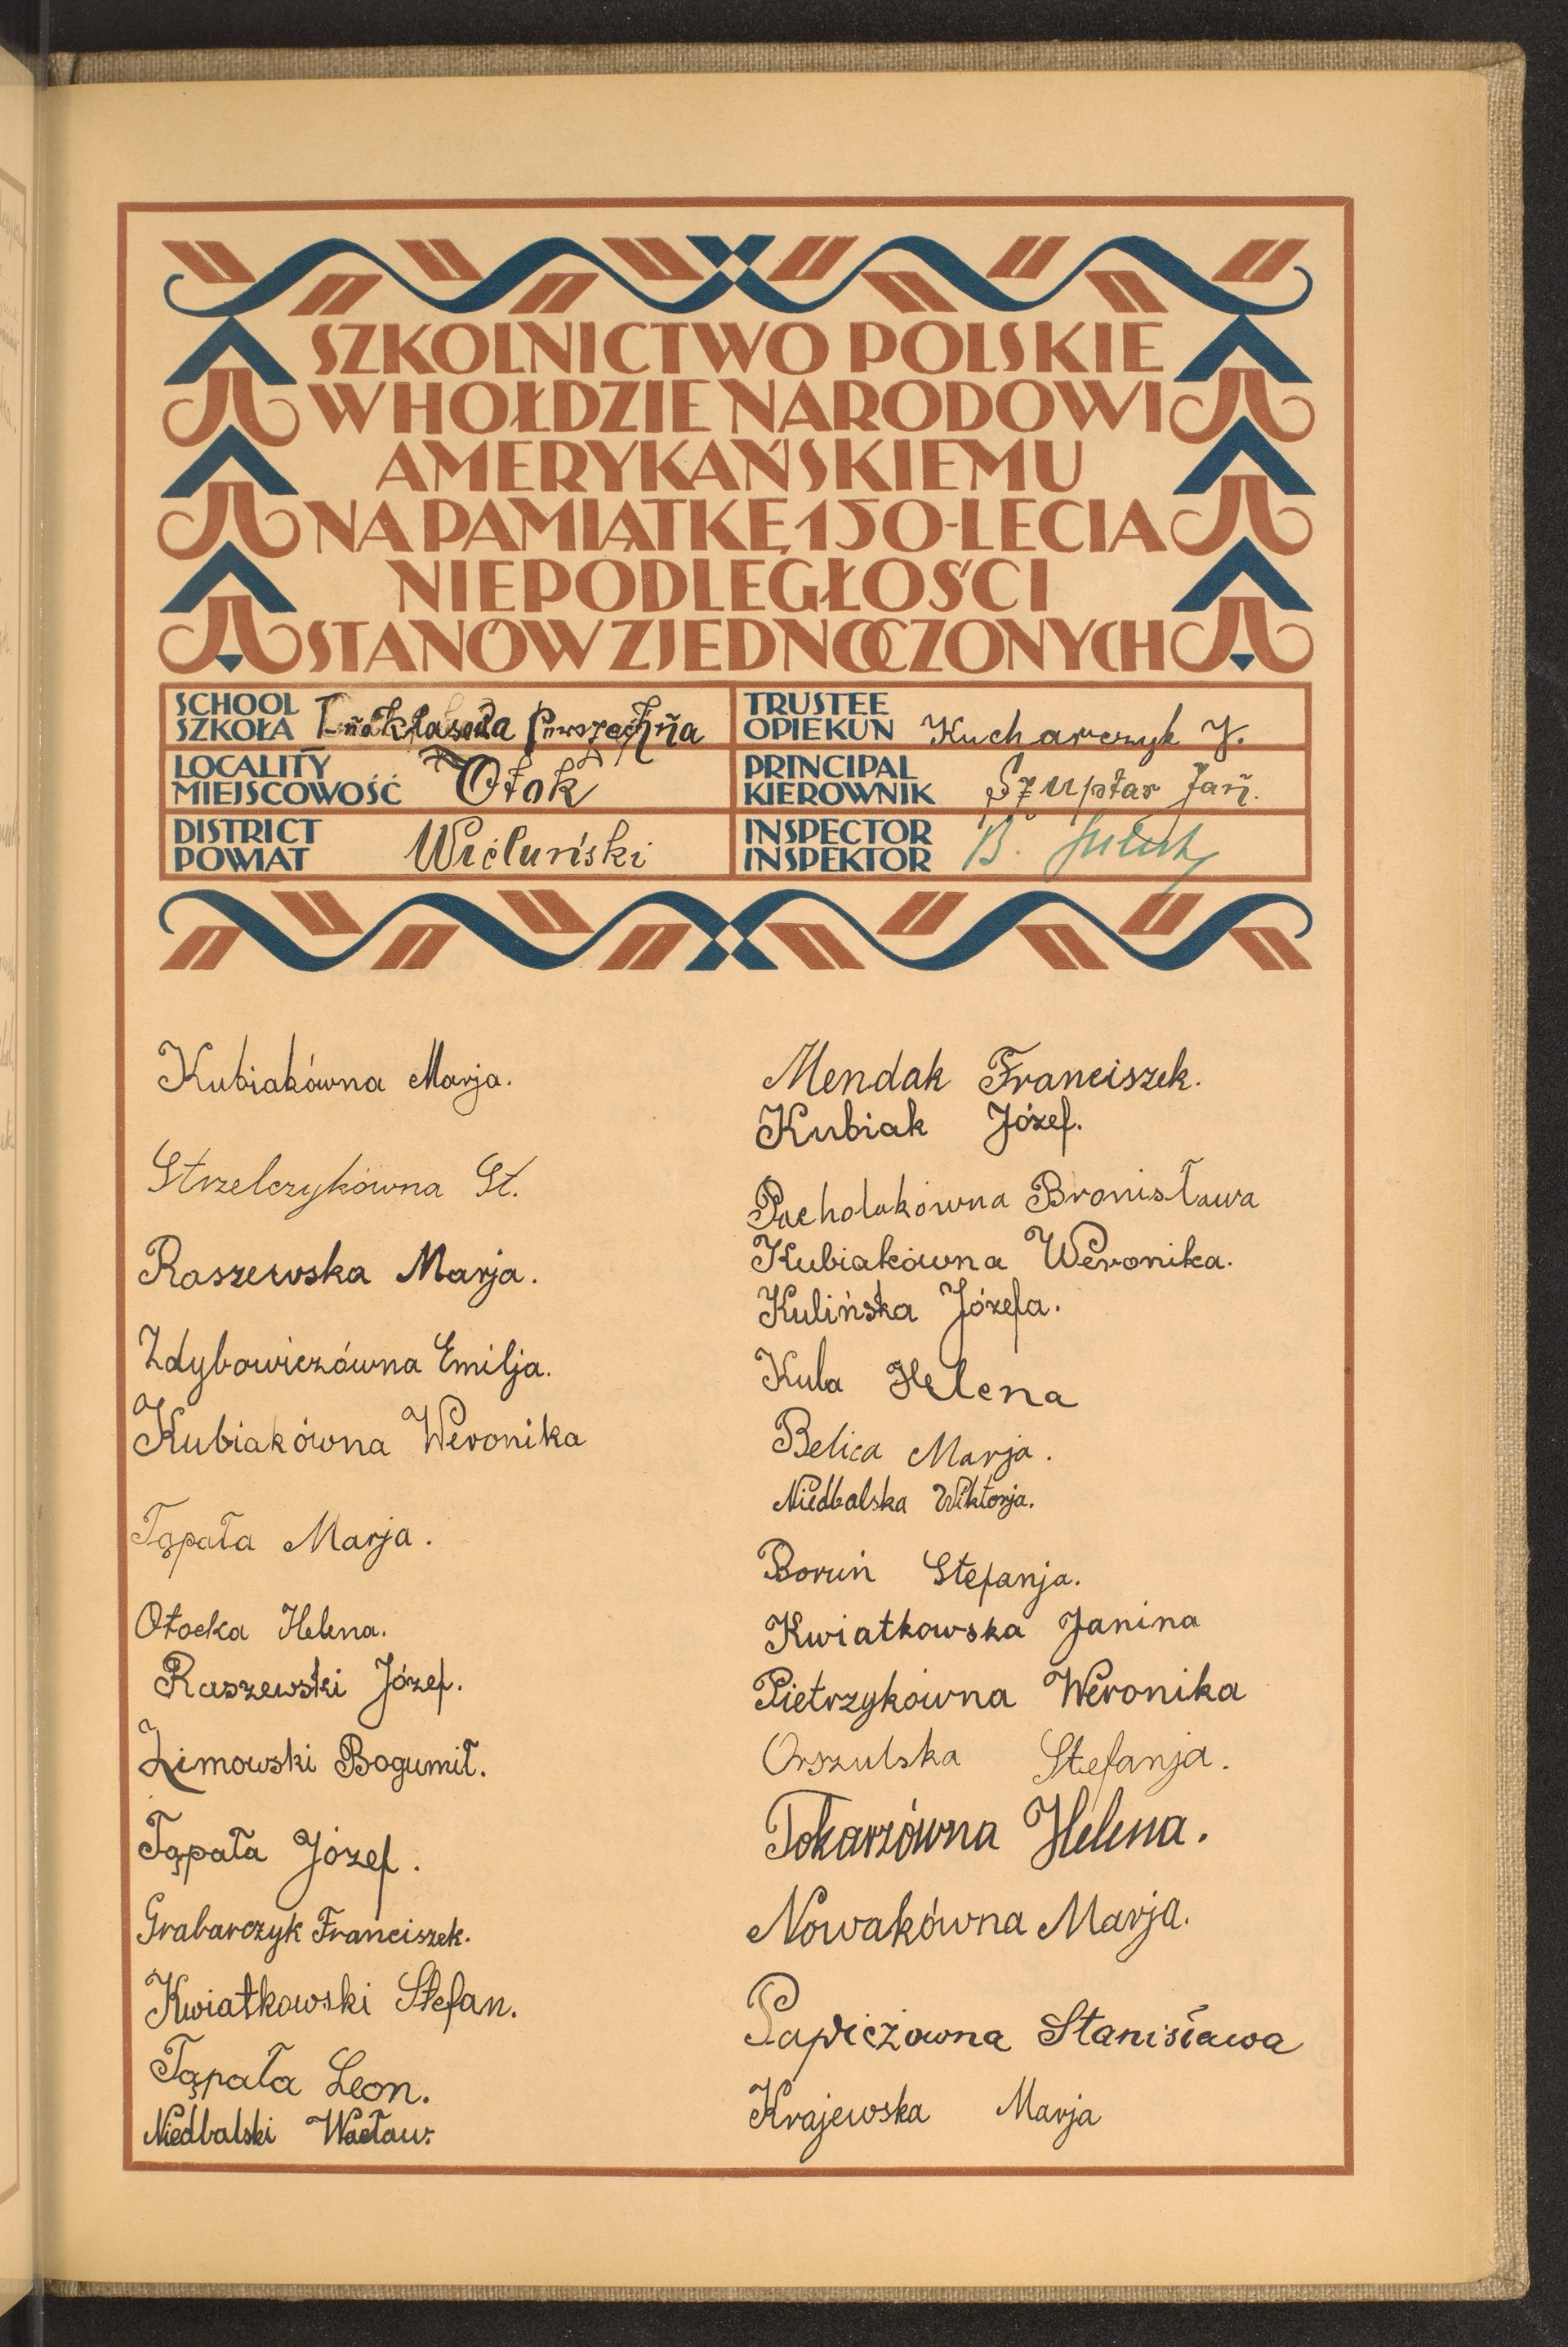 SZKOLNICTWO POLSKIE
W HOŁDZIE NARODOWI
AMERYKAŃSKIEMU
NA PAMIĄTKĘ 150-LECIA
NIEPODLEGŁOŚCI
STANÓW ZJEDNOCZONYCH
SCHOOL
SZKOŁA
TRUSTEE
OPIEKUN Kucharczyk J.
LOCALITY
MIEJSCOWOŚĆ Otok
PRINCIPAL
KIEROWNIK Szuptar Jan.
DISTRICT
POWIAT Wieluński
INSPECTOR
INSPEKTOR B.
Kubiakówna Marja.
Strzelczykówna St.
Raszewska Marja.
Zdybowiczówna Emilja.
Kubiakówna Weronika
Tąpała Marja.
Otocka Helena.
Raszewski Józef.
Zimowski Bogumił.
Tąpała Józef.
Grabarczyk Franciszek.
Kwiatkowski Stefan.
Tąpała Leon.
Niedbalski Wacław.
Mendak Franciszek.
Kubiak Józef.
Pacholakówna Bronisława
Kubiakówna Weronika.
Kulińska Józefa.
Kula Helena
Belica Marja.
Niedbalska Wiktorja.
Boruń Stefanja.
Kwiatkowska Janina
Pietrzykówna Weronika
Orszulska Stefanja.
Tokarzówna Helena.
Nowakówna Marja.
Stanisława
Krajewska Marja